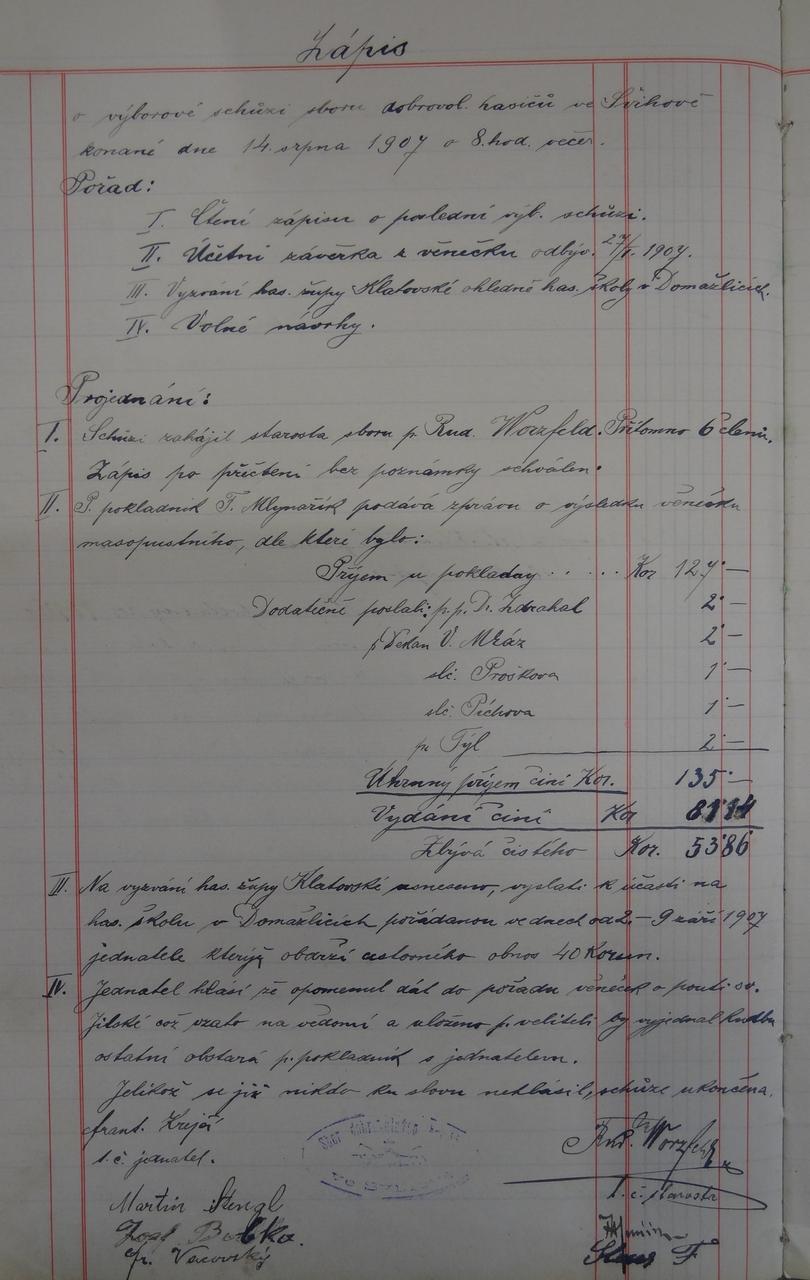 Zápis
o výborové schůzi sboru dobrovol. hasičů ve Švihově
konané dne 14. srpna 1907 o 8. hod. večer.
Pořad:
I. Čtení zápisu o poslední výb. schůzi.
II. Účetní závěrka z věnečku odbýv. 1907.
III. Vyzvání has. župy Klatovské ohledně has. školy v Domažlicích.
IV. Volné návrhy.
Projednání:
I. Schůzi zahájil starosta sboru p. Rud. Worzfeld. Přítomno 6 členů.
Zápis po přečtení bez poznámky schválen.
II. P. pokladník F. Mlynařík podává zprávu o výsledku věnečku
masopustního, dle které bylo:
Příjem u pokladny ..... Kor 127·—
Dodatečně poslali: p.p. Dr. Zdrahal 2·—
p. Děkan V. Mráz 2·—
slč. Proškova 1·—
slč. Píchova 1·—
pr Týl 2·—
Úhrnný příjem činí Kor. 135·—
Vydání činí Kor 81·14
Zbývá čistého Kor. 53·86
III. Na vyzvání has. župy Klatovské usneseno, vyslati k účasti na
has. školu v Domažlicích pořádanou ve dnech od 2.–9 září 1907
jednatele kterýž obdrží cestovného obnos 40 Korun.
IV. Jednatel hlásí že opomenul dát do pořadu věneček o pouti sv.
Jiljské což vzato na vědomí a uloženo p. veliteli by vyjednal hudbu
ostatní obstará p. pokladník s jednatelem.
Jelikož se již nikdo ku slovu nehlásil, schůze ukončena.
Frant. Krejčí
t. č. jednatel.
Rud. Worzfeld
t. č. starosta
Martin Stengl
Josef Bobka.
Fr. Vacovský